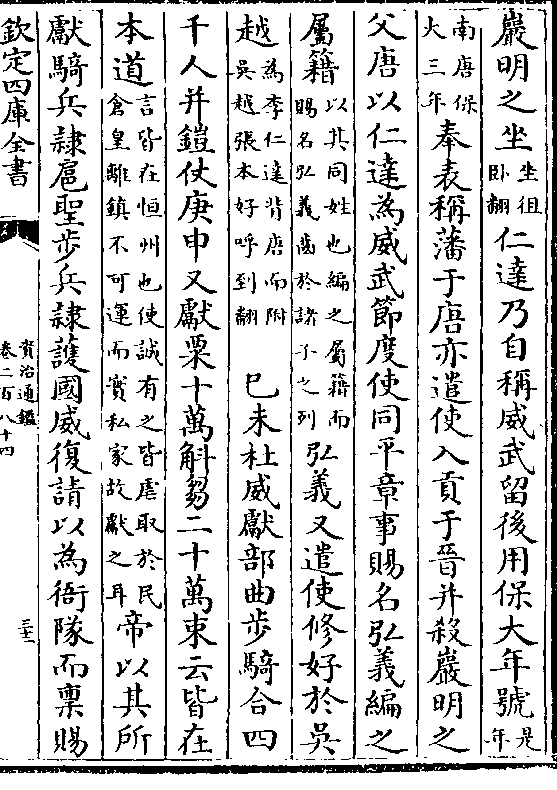 巖明之坐坐徂卧翻仁達乃自稱威武留後用保大年號是年
南唐保大三年奉表稱藩于唐亦遣使入貢于晉并殺巖明之
父唐以仁達為威武節度使同平章事賜名弘義編之
屬籍以其同姓也編之屬籍而賜名弘義齒於諸子之列弘義又遣使修好於吳
越為李仁達背唐而附吳越張本好呼到翻　己未杜威獻部曲步騎合四
千人并鎧仗庚申又獻粟十萬斛芻二十萬束云皆在
本道言皆在恒州也使誠有之皆虐取於民倉皇離鎮不可運而實私家故獻之耳帝以其所
獻騎兵隷扈聖步兵隷護國威復請以為衙隊而稟賜
欽定四庫全書
資治通鑑
卷二百八十四
三十二